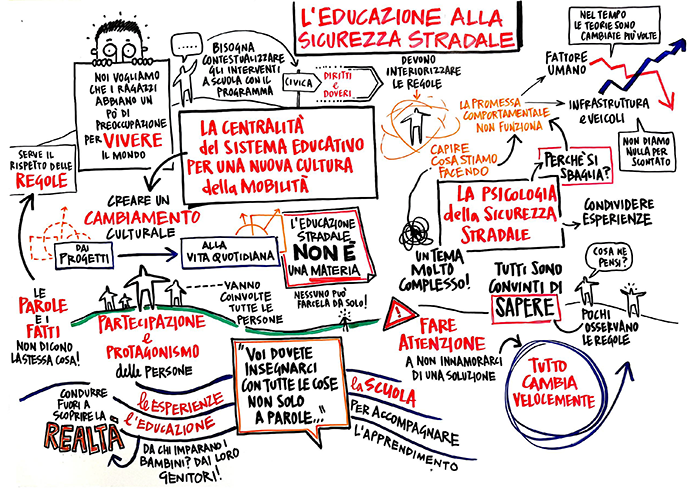 L'EDUCAZIONE ALLA
SICUREZZA STRADALE
NOI VOGLIAMO
CHE I RAGAZZI
ABBIANO UN
PÓ DI
PREOCCUPAZIONE
PER VIVERE
IL MONDO
BISOGNA
CONTESTUALIZZARE
GLI INTERVENTI
A SCUOLA CON IL
PROGRAMMA
CIVICA
DIRITTI
E
DOVERI
DEVONO
INTERIORIZZARE
LE REGOLE
NEL TEMPO
LE TEORIE SONO
CAMBIATE PIÙ VOLTE
FATTORE
UMANO
INFRASTRUTTURA
e VEICOLI
NON DIAMO
NULLA PER
SCONTATO
LA PROMESSA
COMPORTAMENTALE
NON FUNZIONA
CAPIRE
COSA STIAMO
FACENDO
PERCHÈ SI
SBAGLIA?
LA CENTRALITÀ
del SISTEMA EDUCATIVO
PER UNA NUOVA CULTURA
della MOBILITÀ
SERVE IL
RISPETTO DELLE
REGOLE
CREARE UN
CAMBIAMENTO
CULTURALE
DAI
PROGETTI
ALLA
VITA QUOTIDIANA
L'EDUCAZIONE
STRADALE
NON È
UNA MATERIA
NESSUNO PUÒ
FARCELA DA SOLO!
LA PSICOLOGIA
della SICUREZZA
STRADALE
CONDIVIDERE
ESPERIENZE
UN TEMA
MOLTO
COMPLESSO!
TUTTI SONO
CONVINTI DI
SAPERE
COSA NE
PENSI?
POCHI
OSSERVANO
LE REGOLE
LE
PAROLE
E I
FATTI
NON DICONO
LA STESSA COSA!
VANNO
COINVOLTE
TUTTE LE
PERSONE
PARTECIPAZIONE
e
PROTAGONISMO
delle PERSONE
FARE
ATTENZIONE
A NON INNAMORARCI
DI UNA SOLUZIONE
TUTTO
CAMBIA
VELOCEMENTE
"VOI DOVETE
INSEGNARCI
CON TUTTE LE COSE
NON SOLO
A PAROLE..."
CONDURRE
FUORI A
SCOPRIRE LA
REALTÀ
le ESPERIENZE
l'EDUCAZIONE
DA CHI IMPARANO I
BAMBINI? DAI LORO
GENITORI!
la SCUOLA
PER ACCOMPAGNARE
L'APPRENDIMENTO